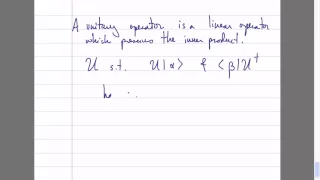 A unitary operator is a linear operator
which preserves the inner product.
U s.t. U|α⟩ & ⟨β|U†